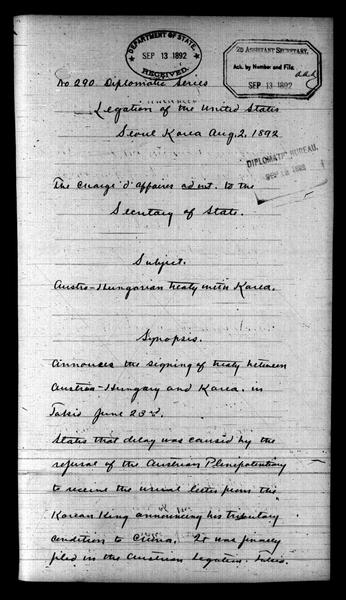 DEPARTMENT OF STATE,
SEP 13 1892
RECEIVED.
2D ASSISTANT SECRETARY.
Ack. by Number and File.
SEP 13 1892
No 290 Diplomatic Series
Legation of the United States
Seoul Korea Aug. 2, 1892
DIPLOMATIC BUREAU.
SEP 13 1892
The Chargé d'affaires ad int. to the
Secretary of State.
Subject.
Austro-Hungarian treaty with Korea.
Synopsis.
Announces the signing of treaty between
Austria-Hungary and Korea, in
Tokio June 23d.
States that delay was caused by the
refusal of the Austrian Plenipotentiary
to receive the usual letter from the
Korean King announcing his tributary
condition to China. It was finally
filed in the Austrian Legation. Tokio.